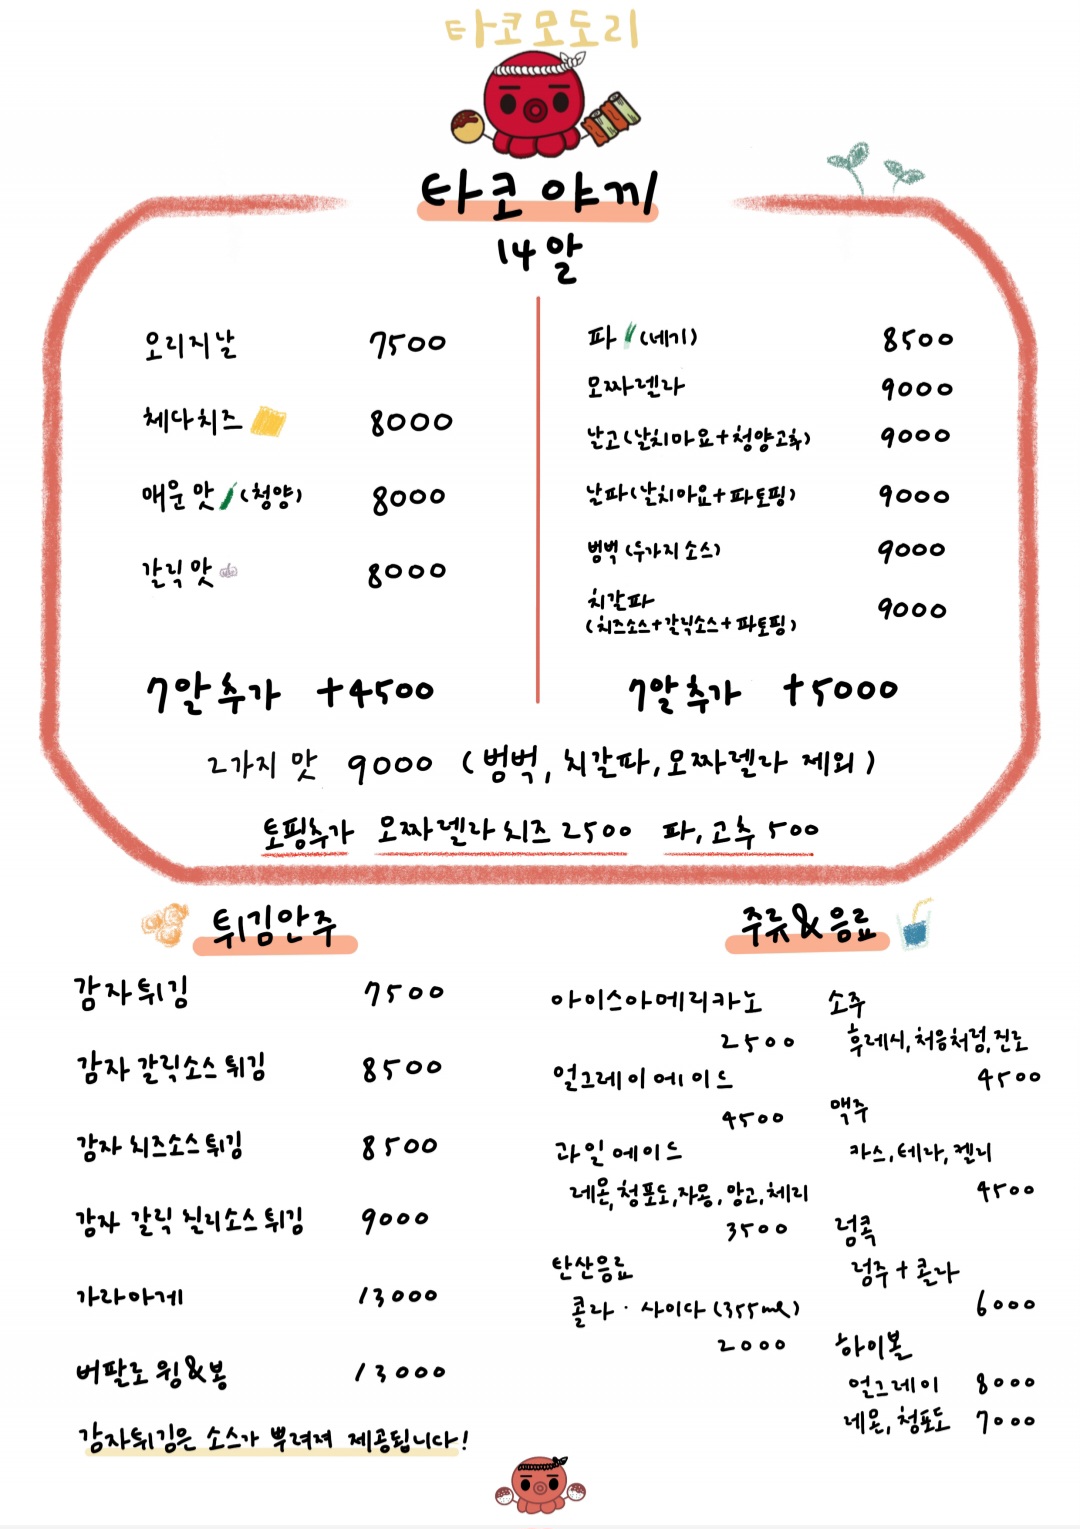 타코모도리
타코야끼
14알
오리지날 7500
체다치즈 8000
매운맛 (청양) 8000
갈릭맛 8000
7알추가 +4500
파 (네기) 8500
모짜렐라 9000
날고(날치마요+청양고추) 9000
날파(날치마요+파토핑) 9000
범벅(두가지소스) 9000
치갈파 9000
(치즈소스+갈릭소스+파토핑)
7알추가 +5000
2가지 맛 9000 (범벅, 치갈파, 모짜렐라 제외)
토핑추가 모짜렐라치즈 2500 파, 고추 500
튀김안주
감자튀김 7500
감자 갈릭소스튀김 8500
감자 치즈소스튀김 8500
감자 갈릭 칠리소스튀김 9000
가라아게 13000
버팔로 윙&봉 13000
감자튀김은 소스가 뿌려져 제공됩니다!
주류&음료
아이스아메리카노
2500
얼그레이에이드
4500
과일에이드
레몬, 청포도, 자몽, 망고, 체리
3500
탄산음료
콜라·사이다(355ml)
2000
소주
후레시, 처음처럼, 진로
4500
맥주
카스, 테라, 켈리
4500
럼콕
럼주+콜라
6000
하이볼
얼그레이 8000
레몬, 청포도 7000